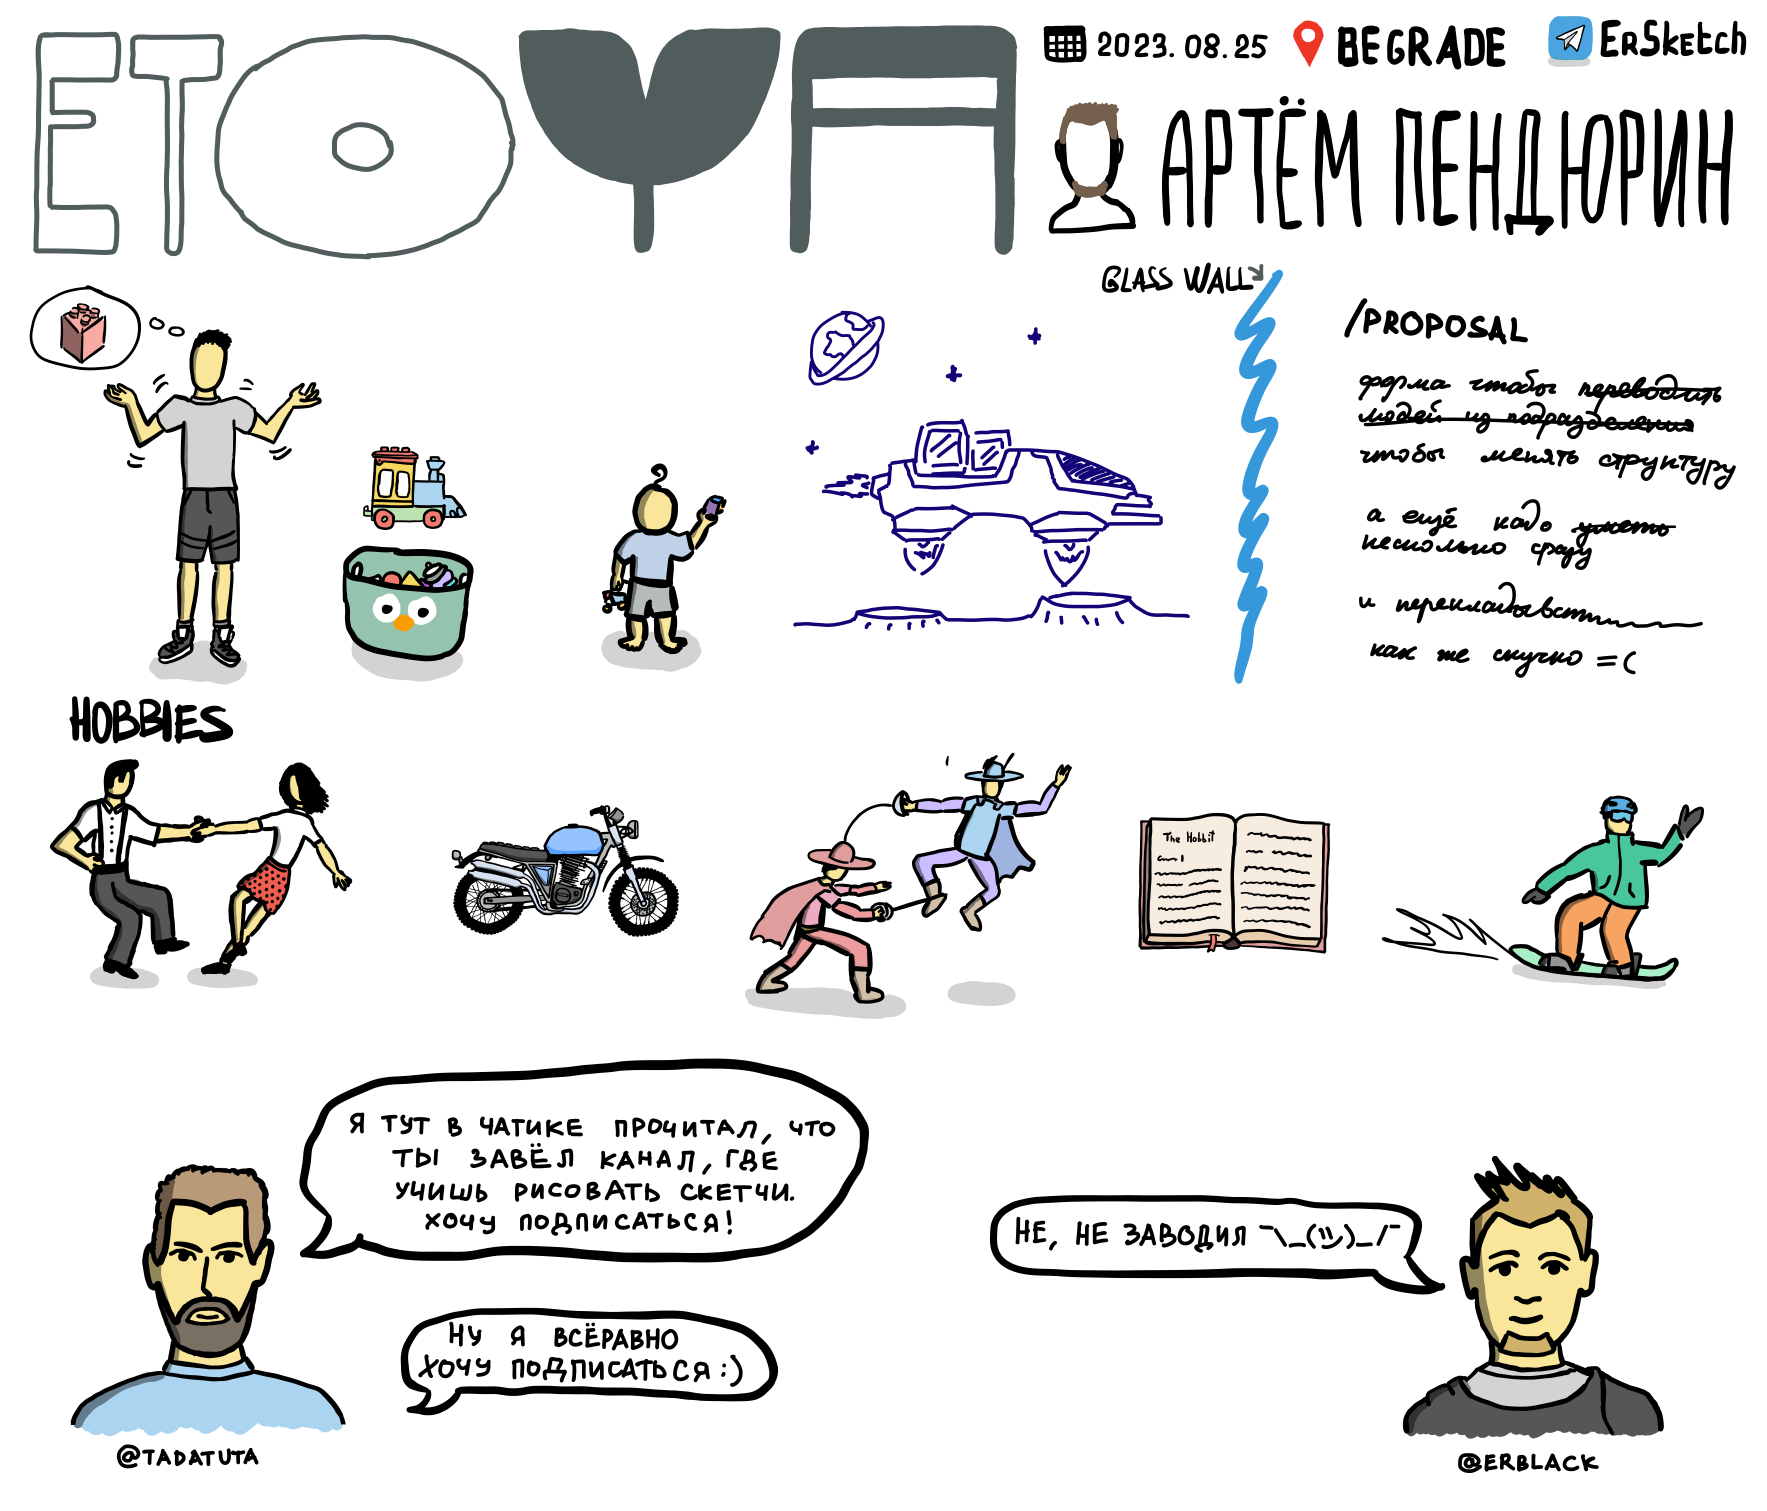 ETOYA
2023.08.25
BEGRADE
ErSketch
АРТЁМ ПЕНДЮРИН
GLASS WALL
/PROPOSAL
форма чтобы переводить
людей из подразделения
чтобы менять структуру
а ещё надо уметь
несколько сразу
и перекладывать
как же скучно =(
HOBBIES
The Hobbit
Я ТУТ В ЧАТИКЕ ПРОЧИТАЛ, ЧТО
ТЫ ЗАВЁЛ КАНАЛ, ГДЕ
УЧИШЬ РИСОВАТЬ СКЕТЧИ.
ХОЧУ ПОДПИСАТЬСЯ!
НЕ, НЕ ЗАВОДИЛ ¯\_(ツ)_/¯
НУ Я ВСЁРАВНО
ХОЧУ ПОДПИСАТЬСЯ :)
@TADATUTA
@ERBLACK